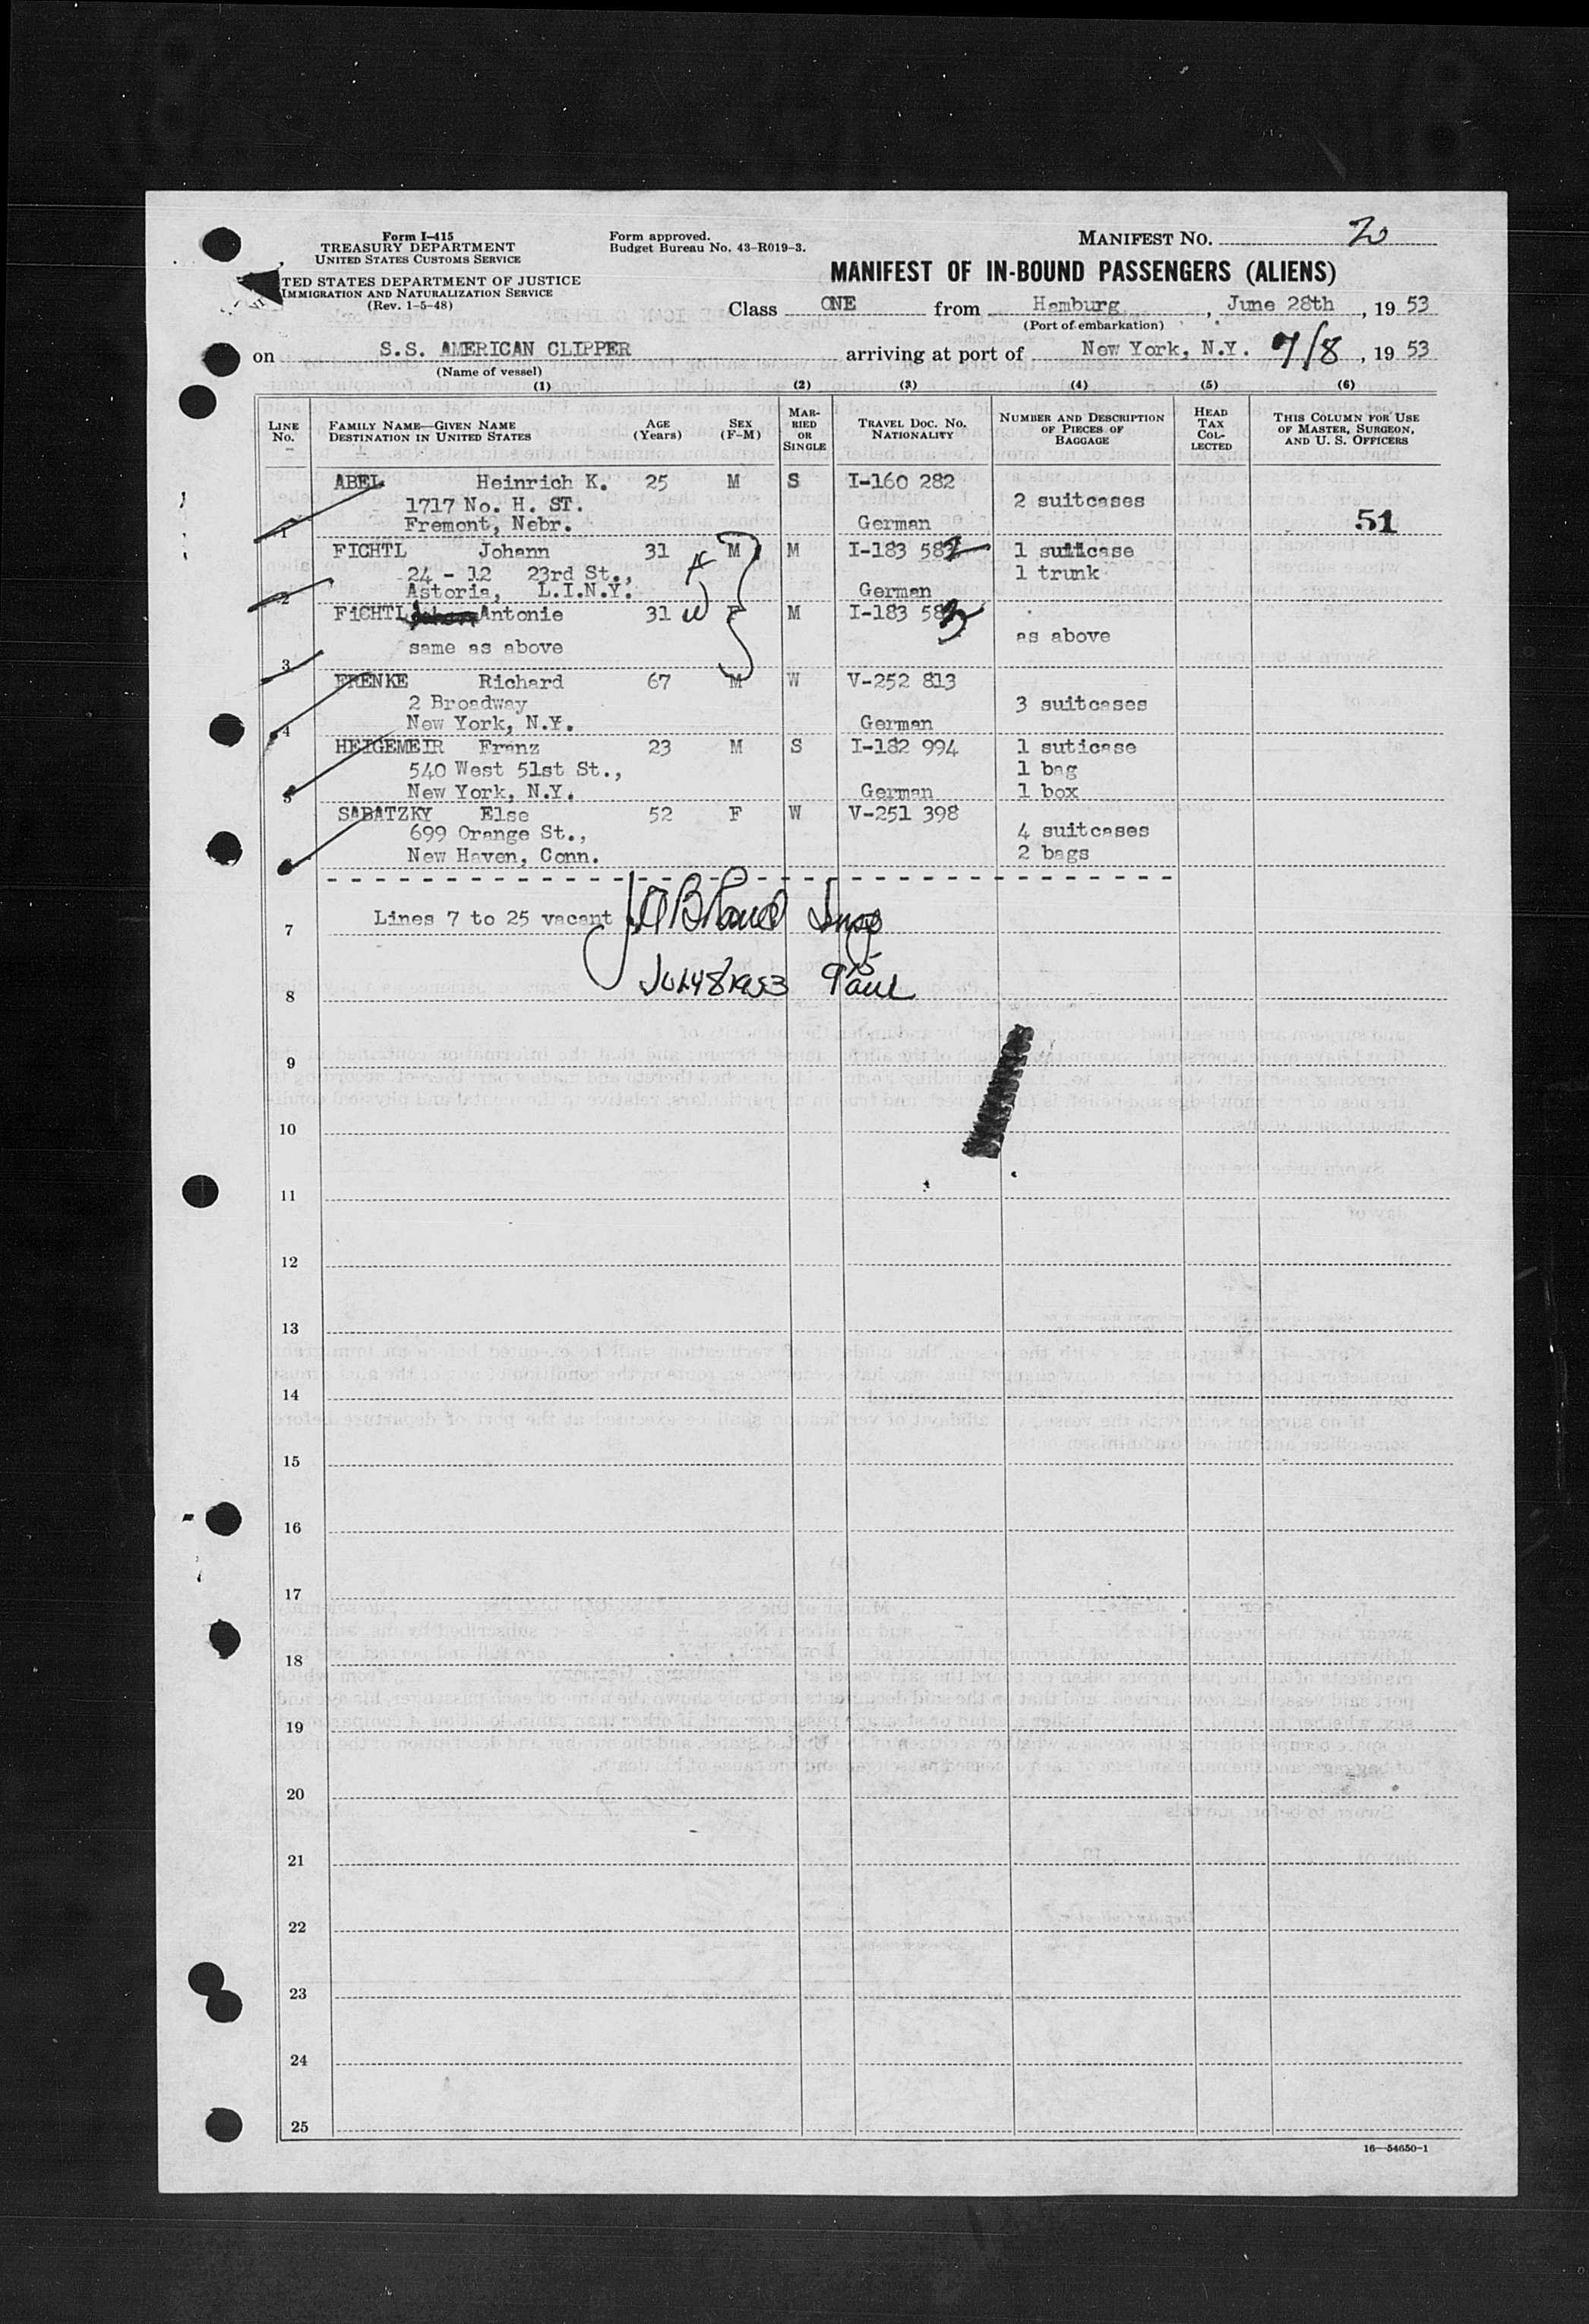 Form I-415
TREASURY DEPARTMENT
UNITED STATES CUSTOMS SERVICE
TED STATES DEPARTMENT OF JUSTICE
IMMIGRATION AND NATURALIZATION SERVICE
(Rev. 1-5-48)
Form approved.
Budget Bureau No. 43-R019-3.
MANIFEST NO. 2
MANIFEST OF IN-BOUND PASSENGERS (ALIENS)
Class ONE from Hamburg, June 28th, 19 53
(Port of embarkation)
on S.S. AMERICAN CLIPPER arriving at port of New York, N.Y. 7/8, 19 53
(Name of vessel)
(1) (2) (3) (4) (5) (6)
LINE No. FAMILY NAME—GIVEN NAME DESTINATION IN UNITED STATES AGE (Years) SEX (F-M) MARRIED OR SINGLE TRAVEL DOC. NO. NATIONALITY NUMBER AND DESCRIPTION OF PIECES OF BAGGAGE HEAD TAX COLLECTED THIS COLUMN FOR USE OF MASTER, SURGEON, AND U. S. OFFICERS
ABEL Heinrich K. 25 M S I-160 282
1717 No. H. ST. 2 suitcases
1 Fremont, Nebr. German 51
FICHTL Johann 31 M M I-183 582 1 suitcase
24 - 12 23rd St., 1 trunk
2 Astoria, L.I.N.Y. German
FiCHTL Antonie 31 W F M I-183 583
same as above as above
3
FRENKE Richard 67 M W V-252 813
2 Broadway 3 suitcases
4 New York, N.Y. German
HEIGEMEIR Franz 23 M S I-182 994 1 suticase
540 West 51st St., 1 bag
5 New York, N.Y. German 1 box
SABATZKY Else 52 F W V-251 398
699 Orange St., 4 suitcases
New Haven, Conn. 2 bags
7 Lines 7 to 25 vacant
8 JULY 8 1953
9
10
11
12
13
14
15
16
17
18
19
20
21
22
23
24
25
16—54650-1